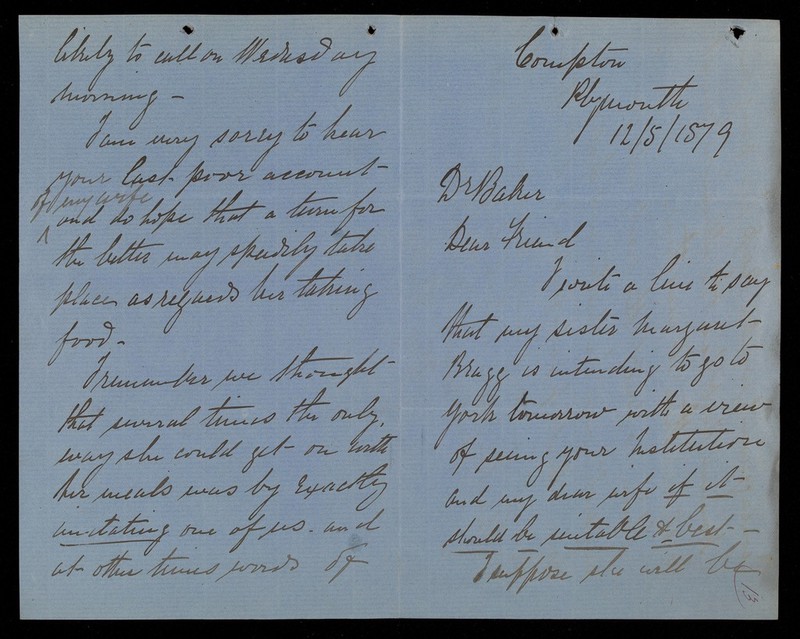 Compton
Plymouth
12/5/1879
Dr Baker
Dear Friend
I write a line to say
that my sister Margaret
Bragg is intending to go to
York tomorrow with a view
of seeing your Institution
and my dear wife if it
should be suitable & best -
I suppose she will be
13
likely to call on Wednesday
morning -
I am very sorry to hear
your last poor account
of my wife
and do hope that a turn for
the better may speedily take
place as regards her taking
food -
I remember we thought
that several times the only
way she could get on with
her meals was by exactly
imitating one of us - and
at other times words of